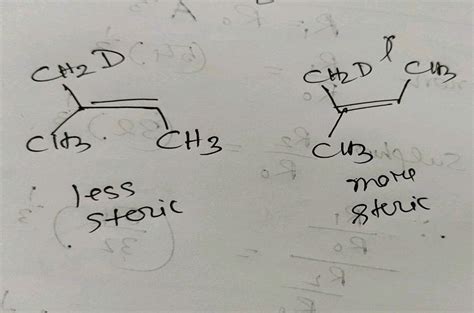 CH2D
CH3
CH3
less
steric
CH2D
CH3
CH3
more
steric